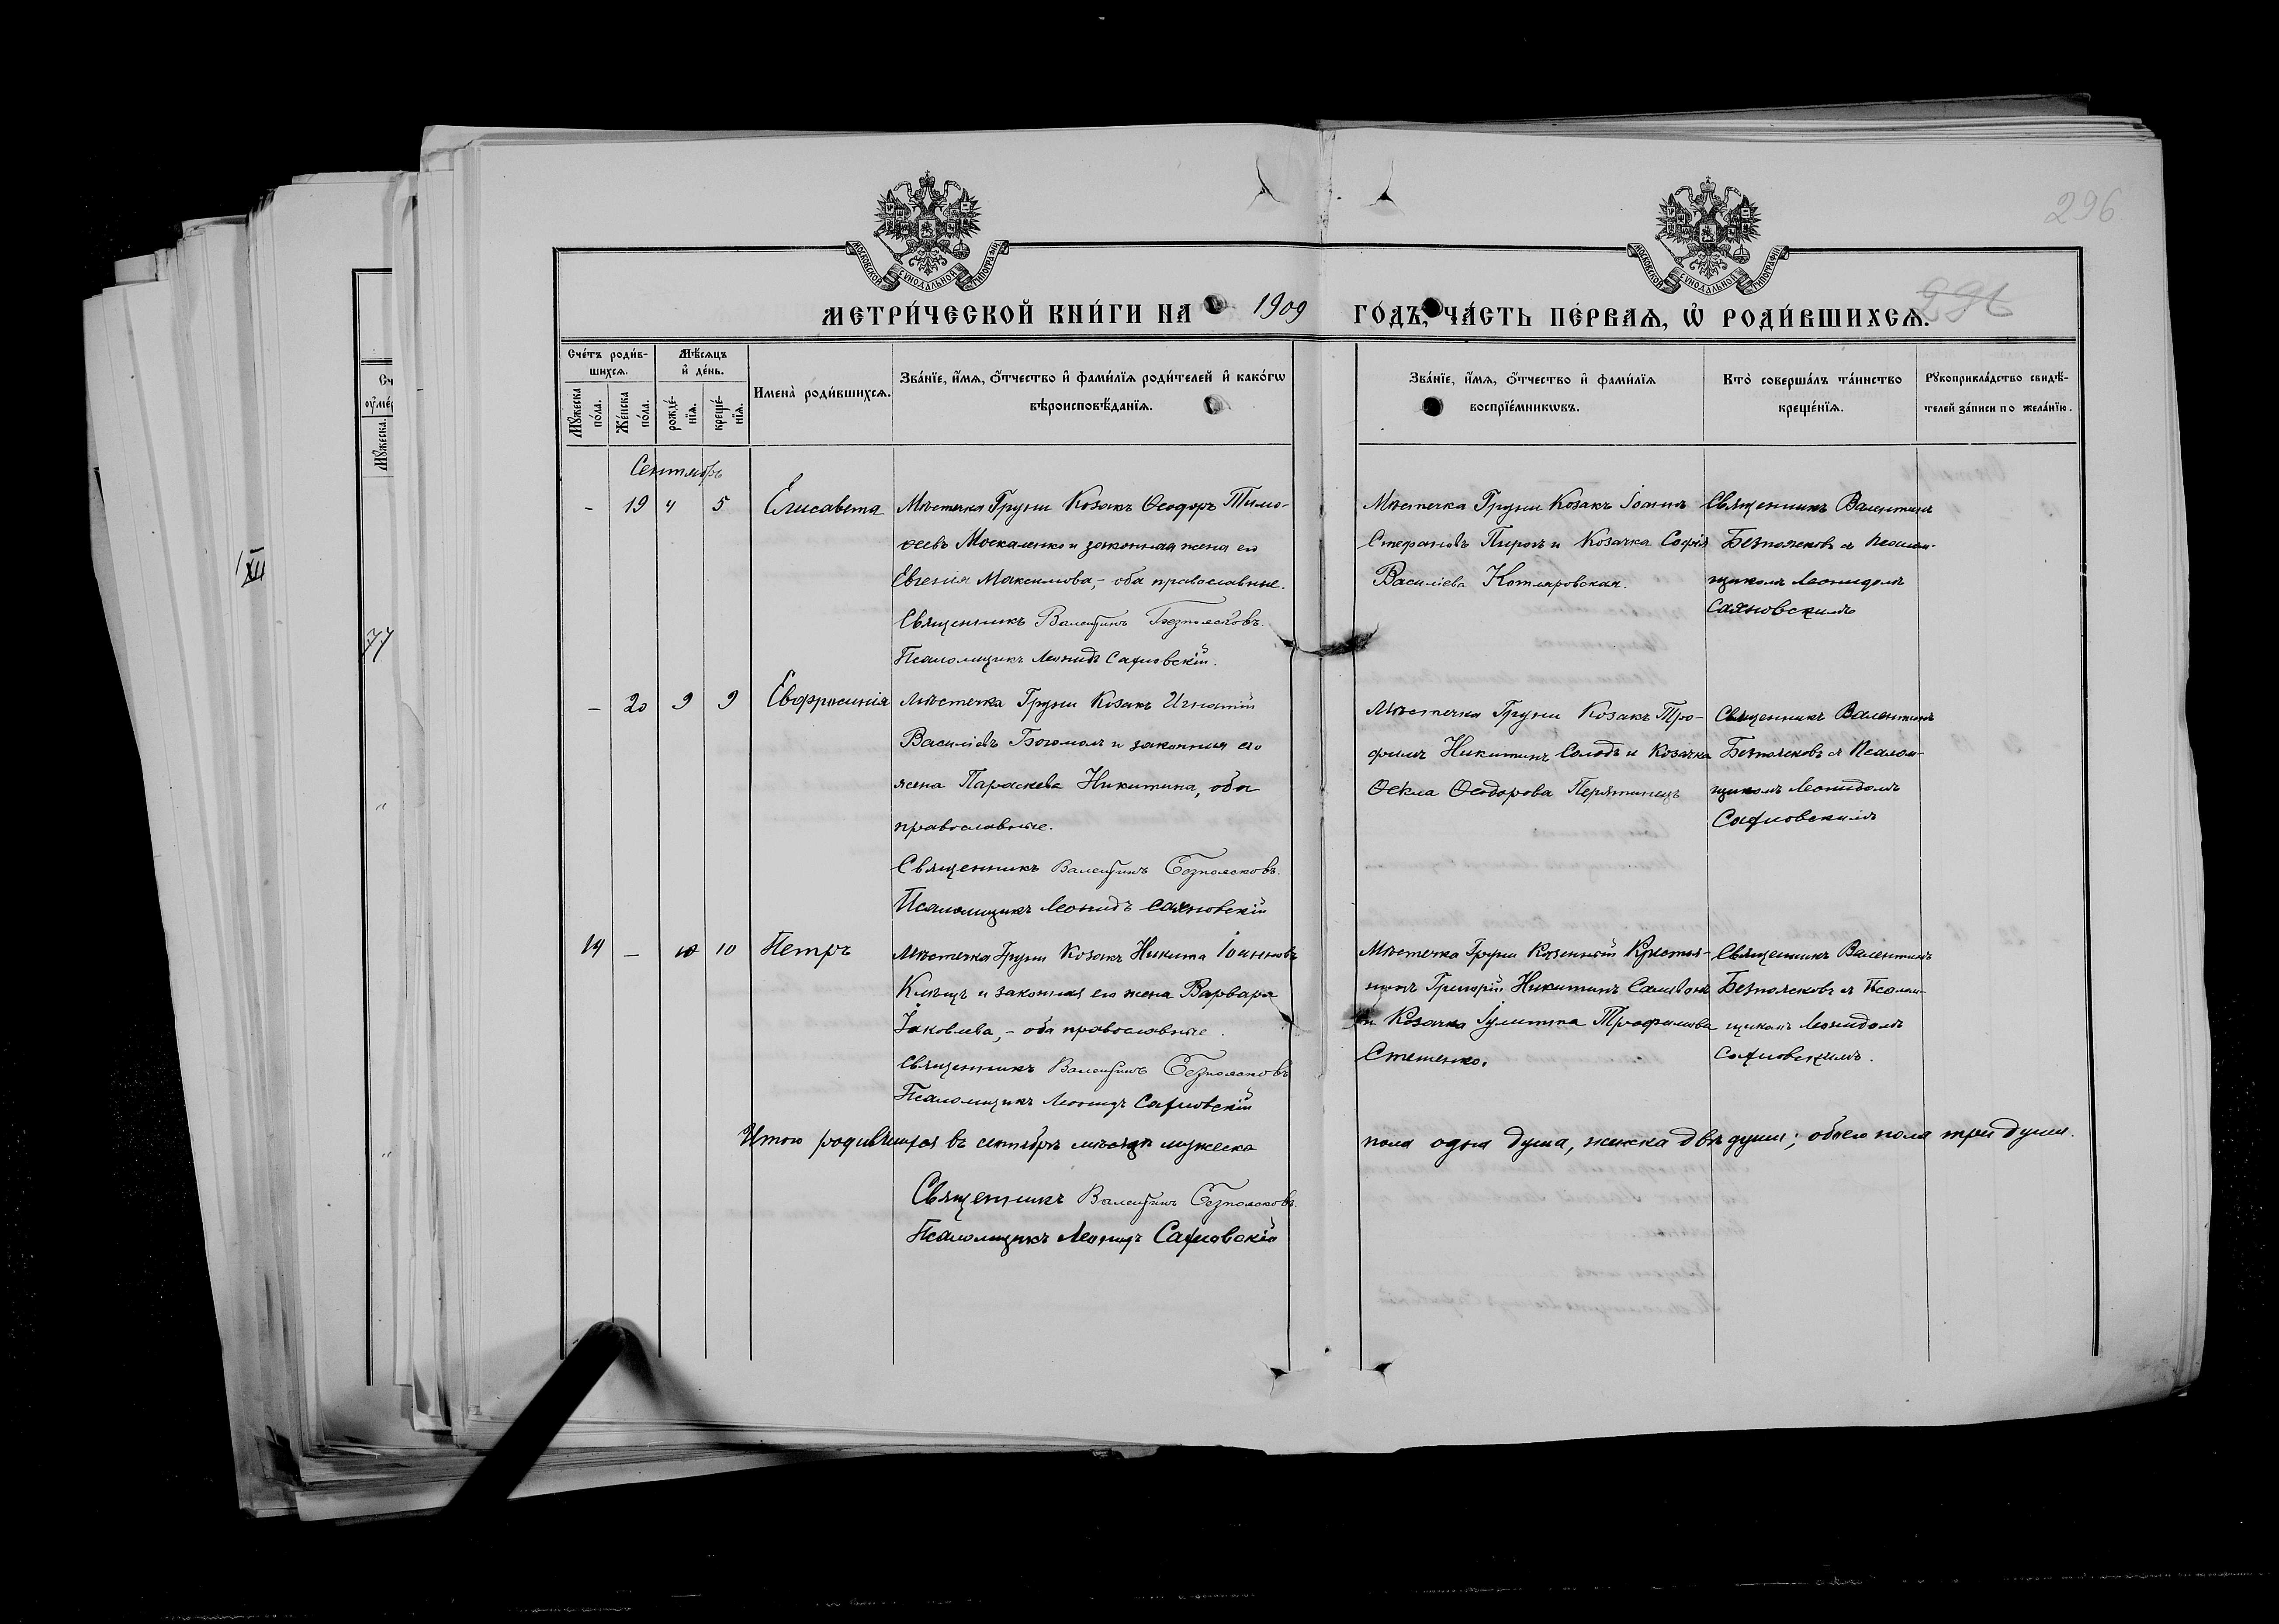 296
МОСКОВСКОЙ СѴНОДАЛЬНОЙ ТИПОГРАФІИ
МОСКОВСКОЙ СѴНОДАЛЬНОЙ ТИПОГРАФІИ
МЕТРИ́ЧЕСКОЙ КНИ́ГИ НА 1909 ГО́ДЪ, ЧА́СТЬ ПЕ́РВАѦ, Ѡ҆ РОДИ́ВШИХСѦ.
Сче́тъ роди́в-
шихсѧ.
Мꙋ́жеска по́ла.
Же́нска по́ла.
Мѣ́сѧцъ
и҆ де́нь.
рожде́-
нїѧ.
креще́-
нїѧ.
Имена̀ роди́вшихсѧ.
Зва́нїе, и҆́мѧ, ѻ҆́тчество и҆ фами́лїѧ роди́телей и҆ како́гѡ
вѣроисповѣ́данїѧ.
Зва́нїе, и҆́мѧ, ѻ҆́тчество и҆ фами́лїѧ
воспрїе́мникѡвъ.
Кто̀ соверша́лъ та́инство
креще́нїѧ.
Рꙋкоприкла́дство свидѣ́-
телей за́писи по жела́нїю.
Сентябрь
- 19 4 5 Елисавета
Мѣстечка Груни Козакъ Ѳеодоръ Тимо-
ѳеевъ Москаленко и законная жена его
Евгенія Максимова, - оба православные.
Священникъ Валентинъ Безпоясковъ.
Псаломщикъ Леонидъ Сахновскій.
Мѣстечка Груни Козакъ Іоаннъ
Стефановъ Пирогъ и Козачка Софія
Василіева Котляровская.
Священникъ Валентинъ
Безпоясковъ съ Псалом-
щикомъ Леонидомъ
Сахновскимъ
- 20 9 9 Евфросинія
Мѣстечка Груни Козакъ Игнатій
Василіевъ Богомолъ и законная его
жена Параскева Никитина, оба
православные.
Священникъ Валентинъ Безпоясковъ.
Псаломщикъ Леонидъ Сахновскій
Мѣстечка Груни Козакъ Тро-
фимъ Никитинъ Солодъ и Козачка
Ѳекла Ѳеодорова Перятинецъ
Священникъ Валентинъ
Безпоясковъ съ Псалом-
щикомъ Леонидомъ
Сахновскимъ
14 - 10 10 Петръ
Мѣстечка Груни Козакъ Никита Іоанновъ
Клѣщъ и законная его жена Варвара
Іаковлева, - оба православные.
Священникъ Валентинъ Безпоясковъ
Псаломщикъ Леонидъ Сахновскій
Мѣстечка Груни Козенный Крестья-
нинъ Григорій Никитинъ
и Козачка Іулитта Трофимова
Стеценко.
Священникъ Валентинъ
Безпоясковъ съ Псалом-
щикомъ Леонидомъ
Сахновскимъ.
Итого родившихся въ сентябрѣ мѣсяцѣ мужеска пола одна душа, женска двѣ души; обоего пола три души.
Священникъ Валентинъ Безпоясковъ.
Псаломщикъ Леонидъ Сахновскій
77